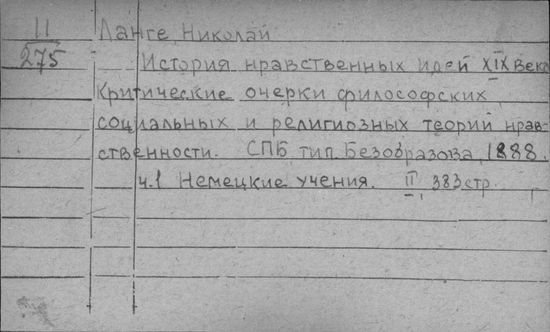 II Ланге Николай
275 История нравственных идей XIX века
Критические очерки философских,
социальных и религиозных теорий нрав-
ственности. СПБ тип. Безобразова, 1888.
ч.1 Немецкие учения. II, 383 стр.